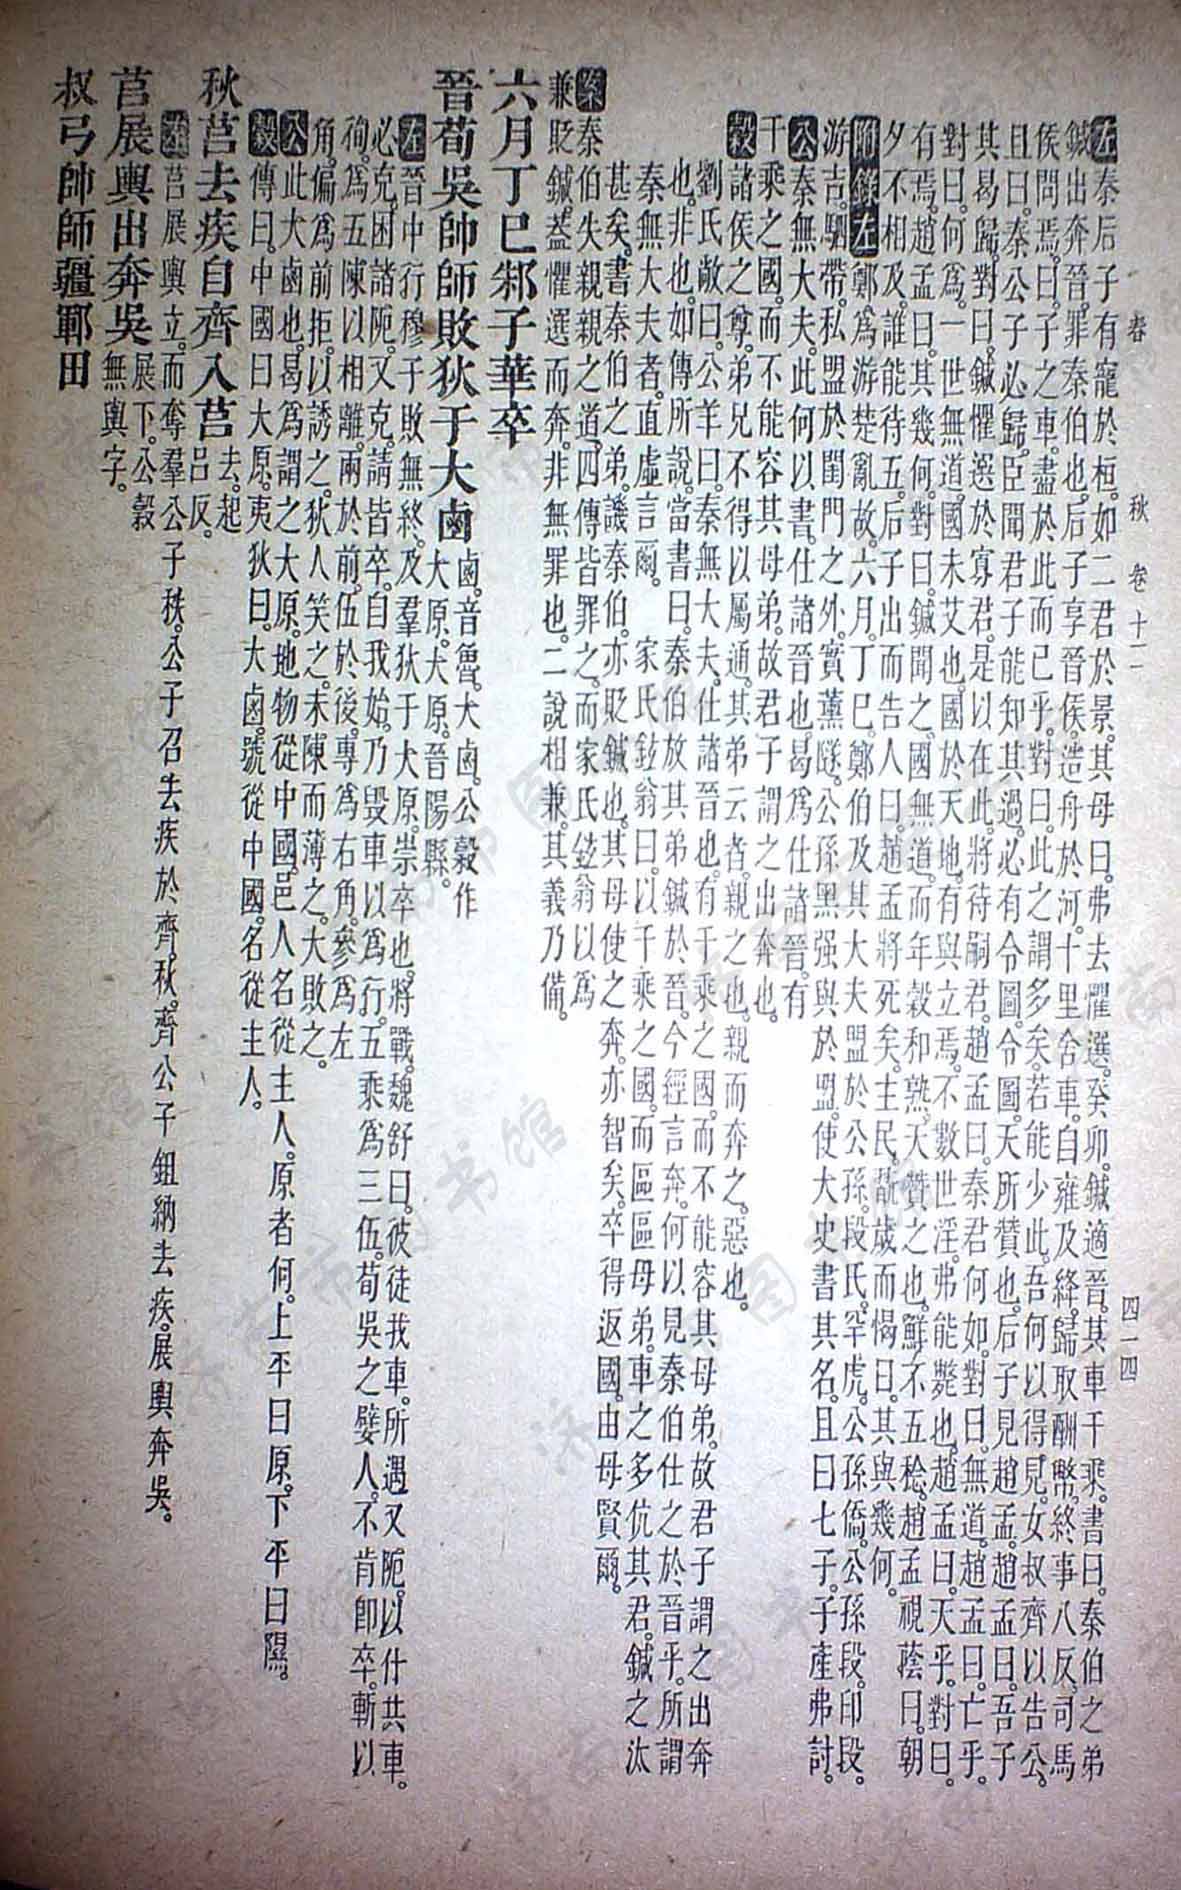 春 秋 卷十一 四一四
左秦后子有寵於桓。如二君於景。其母曰。弗去懼選。癸卯。鍼適晉。其車千乘。書曰。秦伯之弟
鍼出奔晉。罪秦伯也。后子享晉侯。造舟於河。十里舍車。自雍及絳。歸取酬幣。終事八反。司馬
侯問焉。曰。子之車。盡於此而已乎。對曰。此之謂多矣。若能少此。吾何以得見。女叔齊以告公。
且曰。秦公子必歸。臣聞君子能知其過。必有令圖。令圖。天所贊也。后子見趙孟。趙孟曰。吾子
其曷歸。對曰。鍼懼選於寡君。是以在此。將待嗣君。趙孟曰。秦君何如。對曰。無道。趙孟曰。亡乎。
對曰。何爲。一世無道。國未艾也。國於天地。有與立焉。不數世淫。弗能斃也。趙孟曰。天乎。對曰。
有焉。趙孟曰。其幾何。對曰。鍼聞之。國無道。而年穀和熟。天贊之也。鮮不五稔。趙孟視蔭曰。朝
夕不相及。誰能待五。后子出而告人曰。趙孟將死矣。主民。翫歲而愒日。其與幾何。
附錄左鄭爲游楚亂故。六月丁巳。鄭伯及其大夫盟於公孫段氏。罕虎。公孫僑。公孫段。印段。
游吉。駟帶。私盟於閨門之外。實薰隧。公孫黑强與於盟。使大史書其名。且曰七子。子產弗討。
公秦無大夫。此何以書。仕諸晉也。曷爲仕諸晉。有
千乘之國。而不能容其母弟。故君子謂之出奔也。
穀諸侯之尊。弟兄不得以屬通。其弟云者。親之也。親而奔之。惡也。
劉氏敞曰。公羊曰。秦無大夫。仕諸晉也。有千乘之國。而不能容其母弟。故君子謂之出奔
也。非也。如傳所說。當書曰。秦伯放其弟鍼於晉。今經言奔。何以見秦伯仕之於晉乎。所謂
秦無大夫者。直虛言爾。 家氏鉉翁曰。以千乘之國。而區區母弟。車之多伉其君。鍼之汰
甚矣。書秦伯之弟。譏秦伯。亦貶鍼也。其母使之奔。亦智矣。卒得返國。由母賢爾。
案秦伯失親親之道。四傳皆罪之。而家氏鉉翁以爲
兼貶鍼。蓋懼選而奔。非無罪也。二說相兼。其義乃備。
六月丁巳邾子華卒
晉荀吳帥師敗狄于大鹵 鹵。音魯。大鹵。公穀作
大原。大原。晉陽縣。
左晉中行穆子敗無終。及羣狄于大原。崇卒也。將戰。魏舒曰。彼徒我車。所遇又阨。以什共車。
必克。困諸阨。又克。請皆卒。自我始。乃毀車以爲行。五乘爲三伍。荀吳之嬖人。不肯卽卒。斬以
徇。爲五陳以相離。兩於前。伍於後。專爲右角。參爲左
角。偏爲前拒。以誘之。狄人笑之。未陳而薄之。大敗之。
公此大鹵也。曷爲謂之大原。地物從中國。邑人名從主人。原者何。上平曰原。下平曰隰。
穀傳曰。中國曰大原。夷狄曰。大鹵。號從中國。名從主人。
秋莒去疾自齊入莒 去。起
呂反。
左莒展輿立。而奪羣公子秩。公子召去疾於齊。秋。齊公子鉏納去疾。展輿奔吳。
莒展輿出奔吳 展下。公穀
無輿字。
叔弓帥師疆鄆田